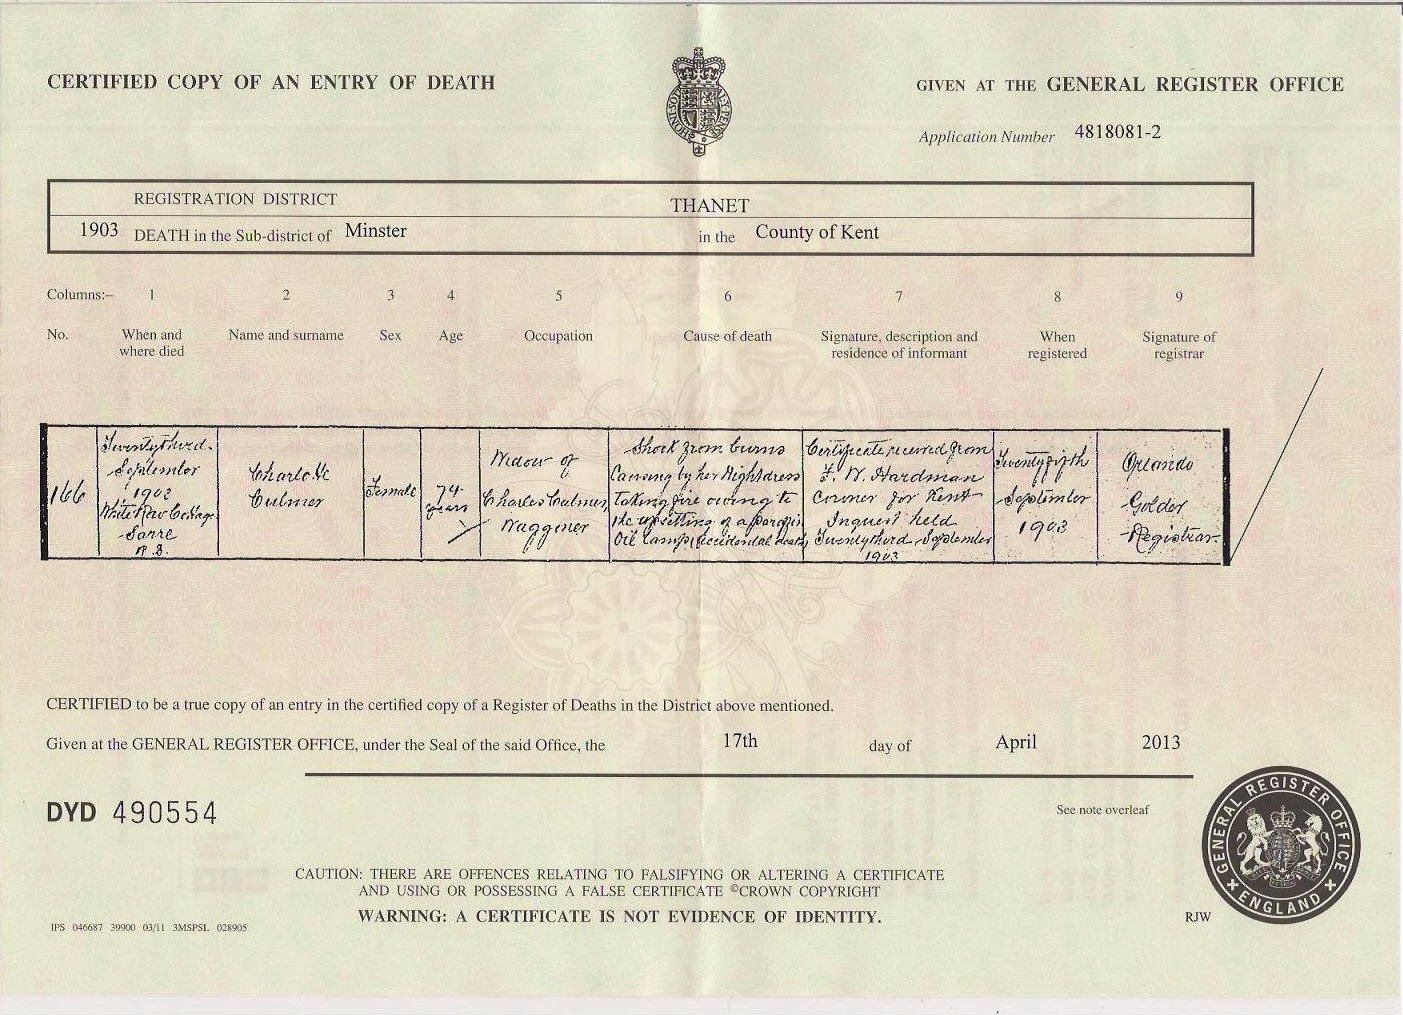 CERTIFIED COPY OF AN ENTRY OF DEATH
GIVEN AT THE GENERAL REGISTER OFFICE
Application Number 4818081-2
REGISTRATION DISTRICT THANET
1903 DEATH in the Sub-district of Minster in the County of Kent
Columns:- 1 2 3 4 5 6 7 8 9
No. When and where died Name and surname Sex Age Occupation Cause of death Signature, description and residence of informant When registered Signature of registrar
166
Twenty third
September
1903
White Row Cottage
Sarre
R.D.
Charlotte
Culmer
Female
74
years
Widow of
Charles Culmer
Waggoner
Shock from burns
Causing by her Nightdress
Taking fire owing to
the upsetting of a paraffin
Oil lamp (accidental death)
Certificate received from
F. W. Hardman
Coroner for Kent
Inquest held
Twenty third September
1903
Twenty fifth
September
1903
Orlando
Golder
Registrar
CERTIFIED to be a true copy of an entry in the certified copy of a Register of Deaths in the District above mentioned.
Given at the GENERAL REGISTER OFFICE, under the Seal of the said Office, the 17th day of April 2013
DYD 490554
See note overleaf
CAUTION: THERE ARE OFFENCES RELATING TO FALSIFYING OR ALTERING A CERTIFICATE
AND USING OR POSSESSING A FALSE CERTIFICATE ©CROWN COPYRIGHT
WARNING: A CERTIFICATE IS NOT EVIDENCE OF IDENTITY.
IPS 046687 39900 03/11 3MSPSL 028905
RJW
GENERAL REGISTER OFFICE
ENGLAND